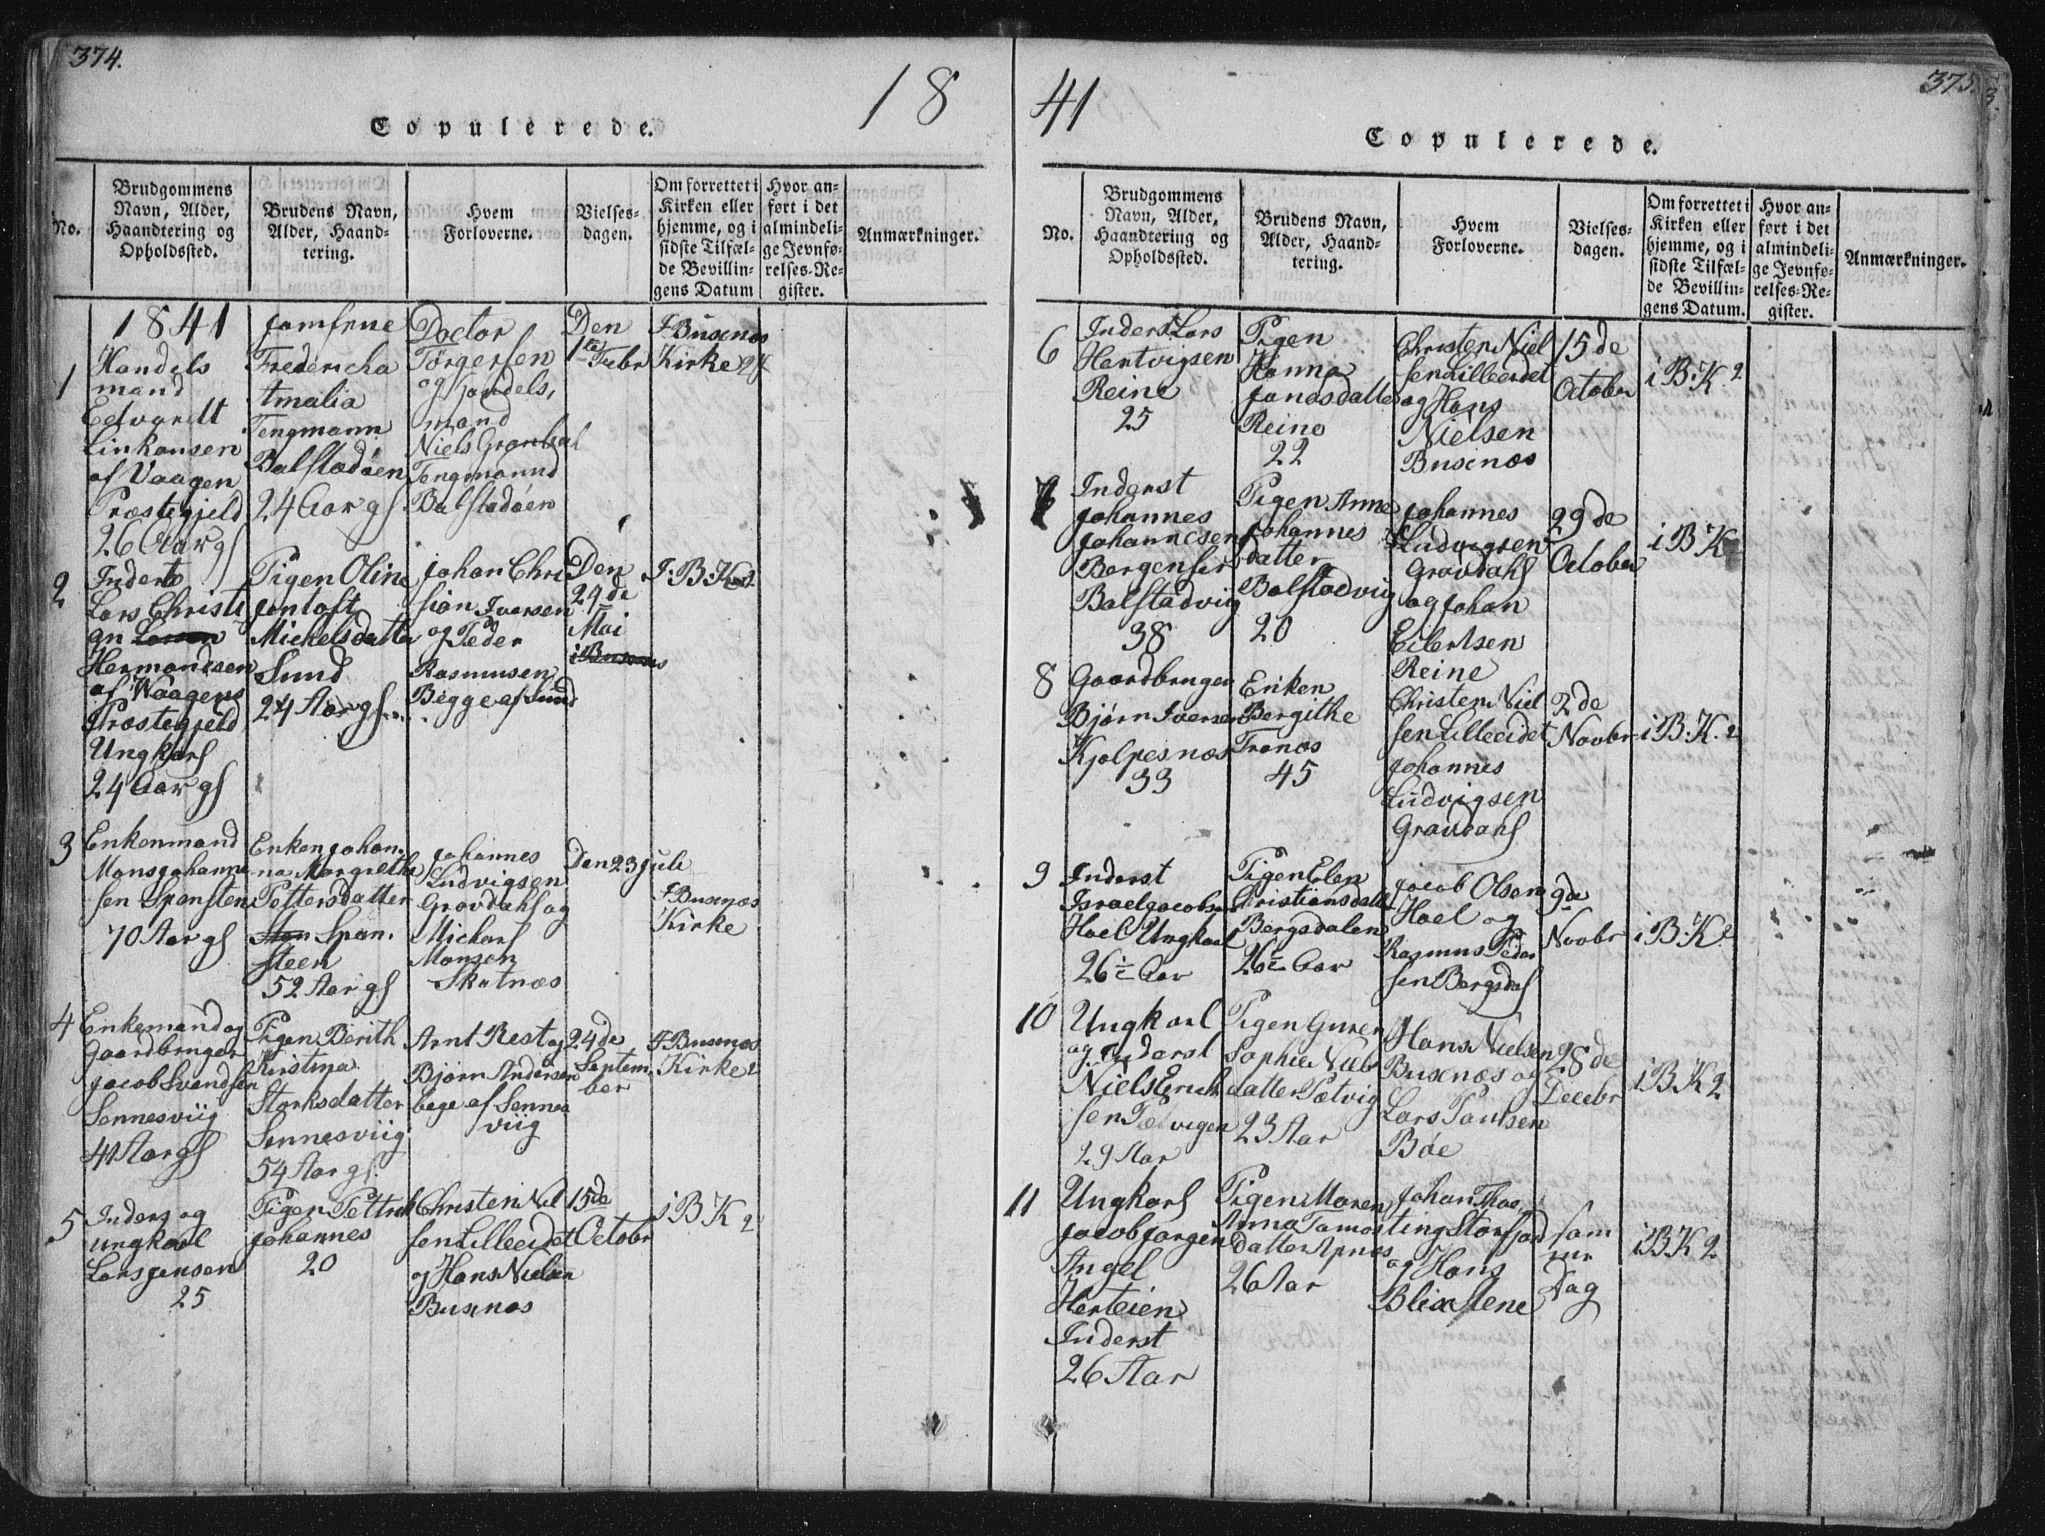 374.
18
Copulerede.
No.
Brudgommens
Navn, Alder,
Haandtering og
Opholdssted.
Brudens Navn,
Alder, Haand-
tering.
Hvem
Forloverne.
Vielses-
dagen.
Om forrettet i
Kirken eller
hjemme, og i
sidste Tilfæl-
de Bevillin-
gens Datum
Hvor an-
ført i det
almindeli-
ge Jevnfø-
relses-Re-
gister.
Anmærkninger.
1841
1
Handels
mand
Edvardt
Linhansen
af Vaagen
Præstegjeld
26 Aar gl
Jomfrue
Fredericha
Amalia
Tengmann
Balstadøen
24 Aar gl
Doctor
Tørgersen
og Handels,
mand
Niels
Tengmannd
Balstadøen
Den
1te Febr
I Busenæs
Kirke
2
Inderst
Lars Christi
an Larsen
Hermandsen
af Waagens
Præstegjeld
Ungkarl
24 Aar gl
Pigen Oline
Jentoft
Michelsdatter
Sund
24 Aar gl
Johan Chri
stian Iversen
og Peder
Rasmusen
Begge af Sund
Den
24de
Mai
i Busenæs
I:B:K
3
Enkenmand
Mons Johanne
sen Spansten
70 Aar gl
Enken Johan-
na Margrethe
Pettersdatter
Span-
steen
52 Aar gl
Johannes
Ludvigsen
Gravdahl og
Michael
Monsen
Skatnæs
Den 23 Juli
I Busenæs
Kirke
4
Enkemand og
Gaardbruger
Jacob Svendsen
Sennesviig
41 Aar gl
Pigen Berith
Kirstina
Storksdatter
Sennesviig
54 Aar gl.
Arnt Rest og
Bjørn Andersen
bege af Sennes
viig
24de
Septem-
ber
I Busenæs
Kirke 2
5
Inders og
ungkarl
Lars Jensen
25
Pigen Pettrek
Johannes
20
Christen Niel
sen Lilleeidet
og Hans Nielsen
Busenæs
15de
Octobr
i B K 2
375.
41
Copulerede.
No.
Brudgommens
Navn, Alder,
Haandtering og
Opholdssted.
Brudens Navn,
Alder, Haand-
tering.
Hvem
Forloverne.
Vielses-
dagen.
Om forrettet i
Kirken eller
hjemme, og i
sidste Tilfæl-
de Bevillin-
gens Datum.
Hvor an-
ført i det
almindeli-
ge Jevnfø-
relses-Re-
gister.
Anmærkninger.
6
Inderst Lars
Hertvigsen
Reine
25
Pigen
Hanna
Jonasdatter
Reine
22
Christen Niel
sen Lilleeidet
og Hans
Nielsen
Busenæs
15de
October
i B:K 2
7
Inderst
Johannes
Johannesen
Bergenfer
Balstadvig
38
Pigen Anne
Johannes
datter
Balstadvig
20
Johannes
Ludvigsen
Gravdahl
og Johan
Eilertsen
Reine
29de
October
i B:K
8
Gaardbruger
Bjørn Iversen
Kjolpesnæs
33
Enken
Bergithe
Tranæs
45
Christen Niel
sen Lilleeidet
Johannes
Ludvigsen
Gravdahl
2de
Novbr
i B:K. 2
9
Inderst
Israel Jacobsen
Hoel Ungkarl
26 Aar
Pigen Elen
Cristiansdatter
Bergsdalen
26 Aar
Jacob Olsen
Hoel og
Rasmus Peder
sen Bergsdal
9de
Novbr
i B:K 2
10
Ungkarl
og Inderst
Niels Erich
sen Petvigen
29 Aar
Pigen Guren
Sophie Niels
datter Petvig
23 Aar
Hans Nielsen
Busenæs og
Lars Paulsen
Bøe
28de
Decebr
i B K 2
11
Ungkarl
Jacob Jorgen
Angel
Herteien
Inderst
26 Aar
Pigen Maren
Anna Tamos
datter Apnes
26 Aar
Johan
ting Storfjord
og Hans
Blixstene
sam
me
Dag
i B K 2